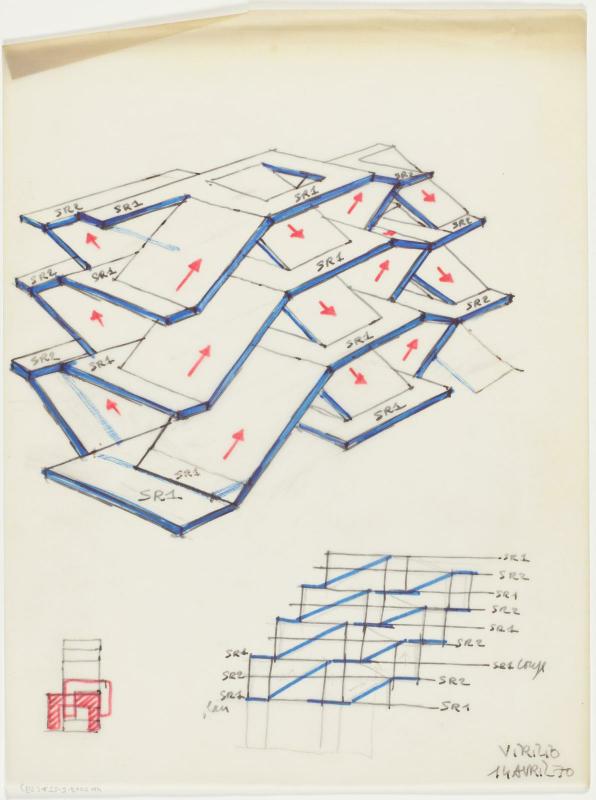 SR2
SR1
SR1
SR2
SR2
SR2
SR1
SR1
SR2
SR2
SR1
SR1
SR1
SR1
SR1
SR1
SR2
SR1
SR2
SR1
SR1
SR2
SR1 coupe
SR2
SR2
SR1
SR1
plan
VIRILIO
14 AVRIL 70